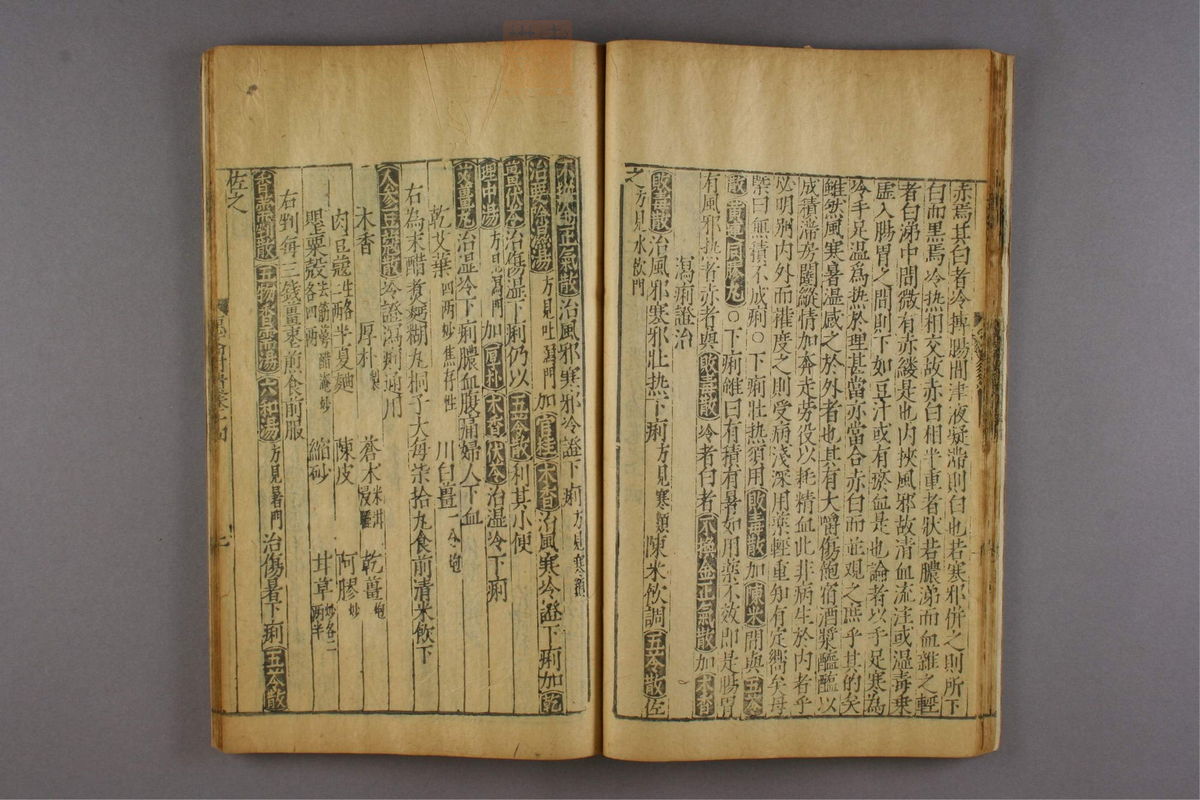 赤焉其白者冷搏腸間津液凝滯則白也若寒邪併之則所下
白而黑焉冷热相交故赤白相半重者狀若膿涕而血雜之輕
者白涕中間微有赤縷是也内挾風邪故清血流注或温毒乗
虚入腸胃之間則下如豆汁或有瘀血是也論者以手足寒為
冷手足温爲热於理甚當亦當合赤白而並觀之庶乎其的矣
雖然風寒暑温感之於外者也其有大嚼傷飽宿酒漿醞醞以
成積滯房闥縱情加奔走勞役以耗精血此非病生於内者乎
必明别内外而權度之則受病淺深用藥輕重知有定嚮矣毋
槩曰無積不成痢○下痢壮热須用敗毒散加陳米間與五苓
散黄連同勝丸○下痢雖曰有積有暑如用藥不效即是腸胃
有風邪热者赤者與敗毒散冷者白者不換金正氣散加木香
瀉痢證治
敗毒散治風邪寒邪壮热下痢方見寒類陳米飲調五苓散佐
之方見水飲門
不換金正氣散治風邪寒邪冷證下痢方見寒類
治要冷濕湯方見吐瀉門加官桂木香治風寒冷證下痢加乾
薑伏苓治傷湿下痢仍以五苓散利其小便
理中湯方見瀉門加厚朴木香伏苓治温冷下痢
艾薑丸治温冷下痢膿血腹痛婦人下血
乾艾葉四兩炒焦存性 川白薑一个炮
右為末醋煮麵糊丸桐子大每柒拾丸食前清米飲下
人參豆蔻散冷證瀉痢通用
木香 厚朴製 蒼术米泔浸 乾薑炮
肉豆蔻生各二兩 半夏麯 陳皮 阿膠炒
罌粟殼去筋萼醋淹炒各四兩 縮砂 甘草炒各二兩半
右剉每三錢薑棗煎食前服
香薷剉散五物香薷湯六和湯方見暑門治傷暑下痢五苓散
佐之